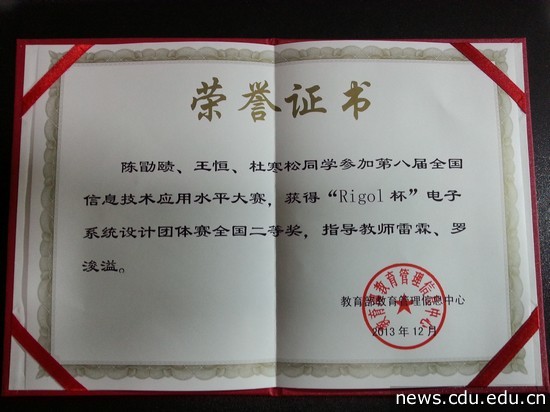 荣誉证书
陈勖赜、王恒、杜寒松同学参加第八届全国
信息技术应用水平大赛，获得“Rigol 杯”电子
系统设计团体赛全国二等奖，指导教师雷霖、罗
浚溢。
教育部教育管理信息中心
2013 年 12 月
教育部教育管理信息中心
news.cdu.edu.cn